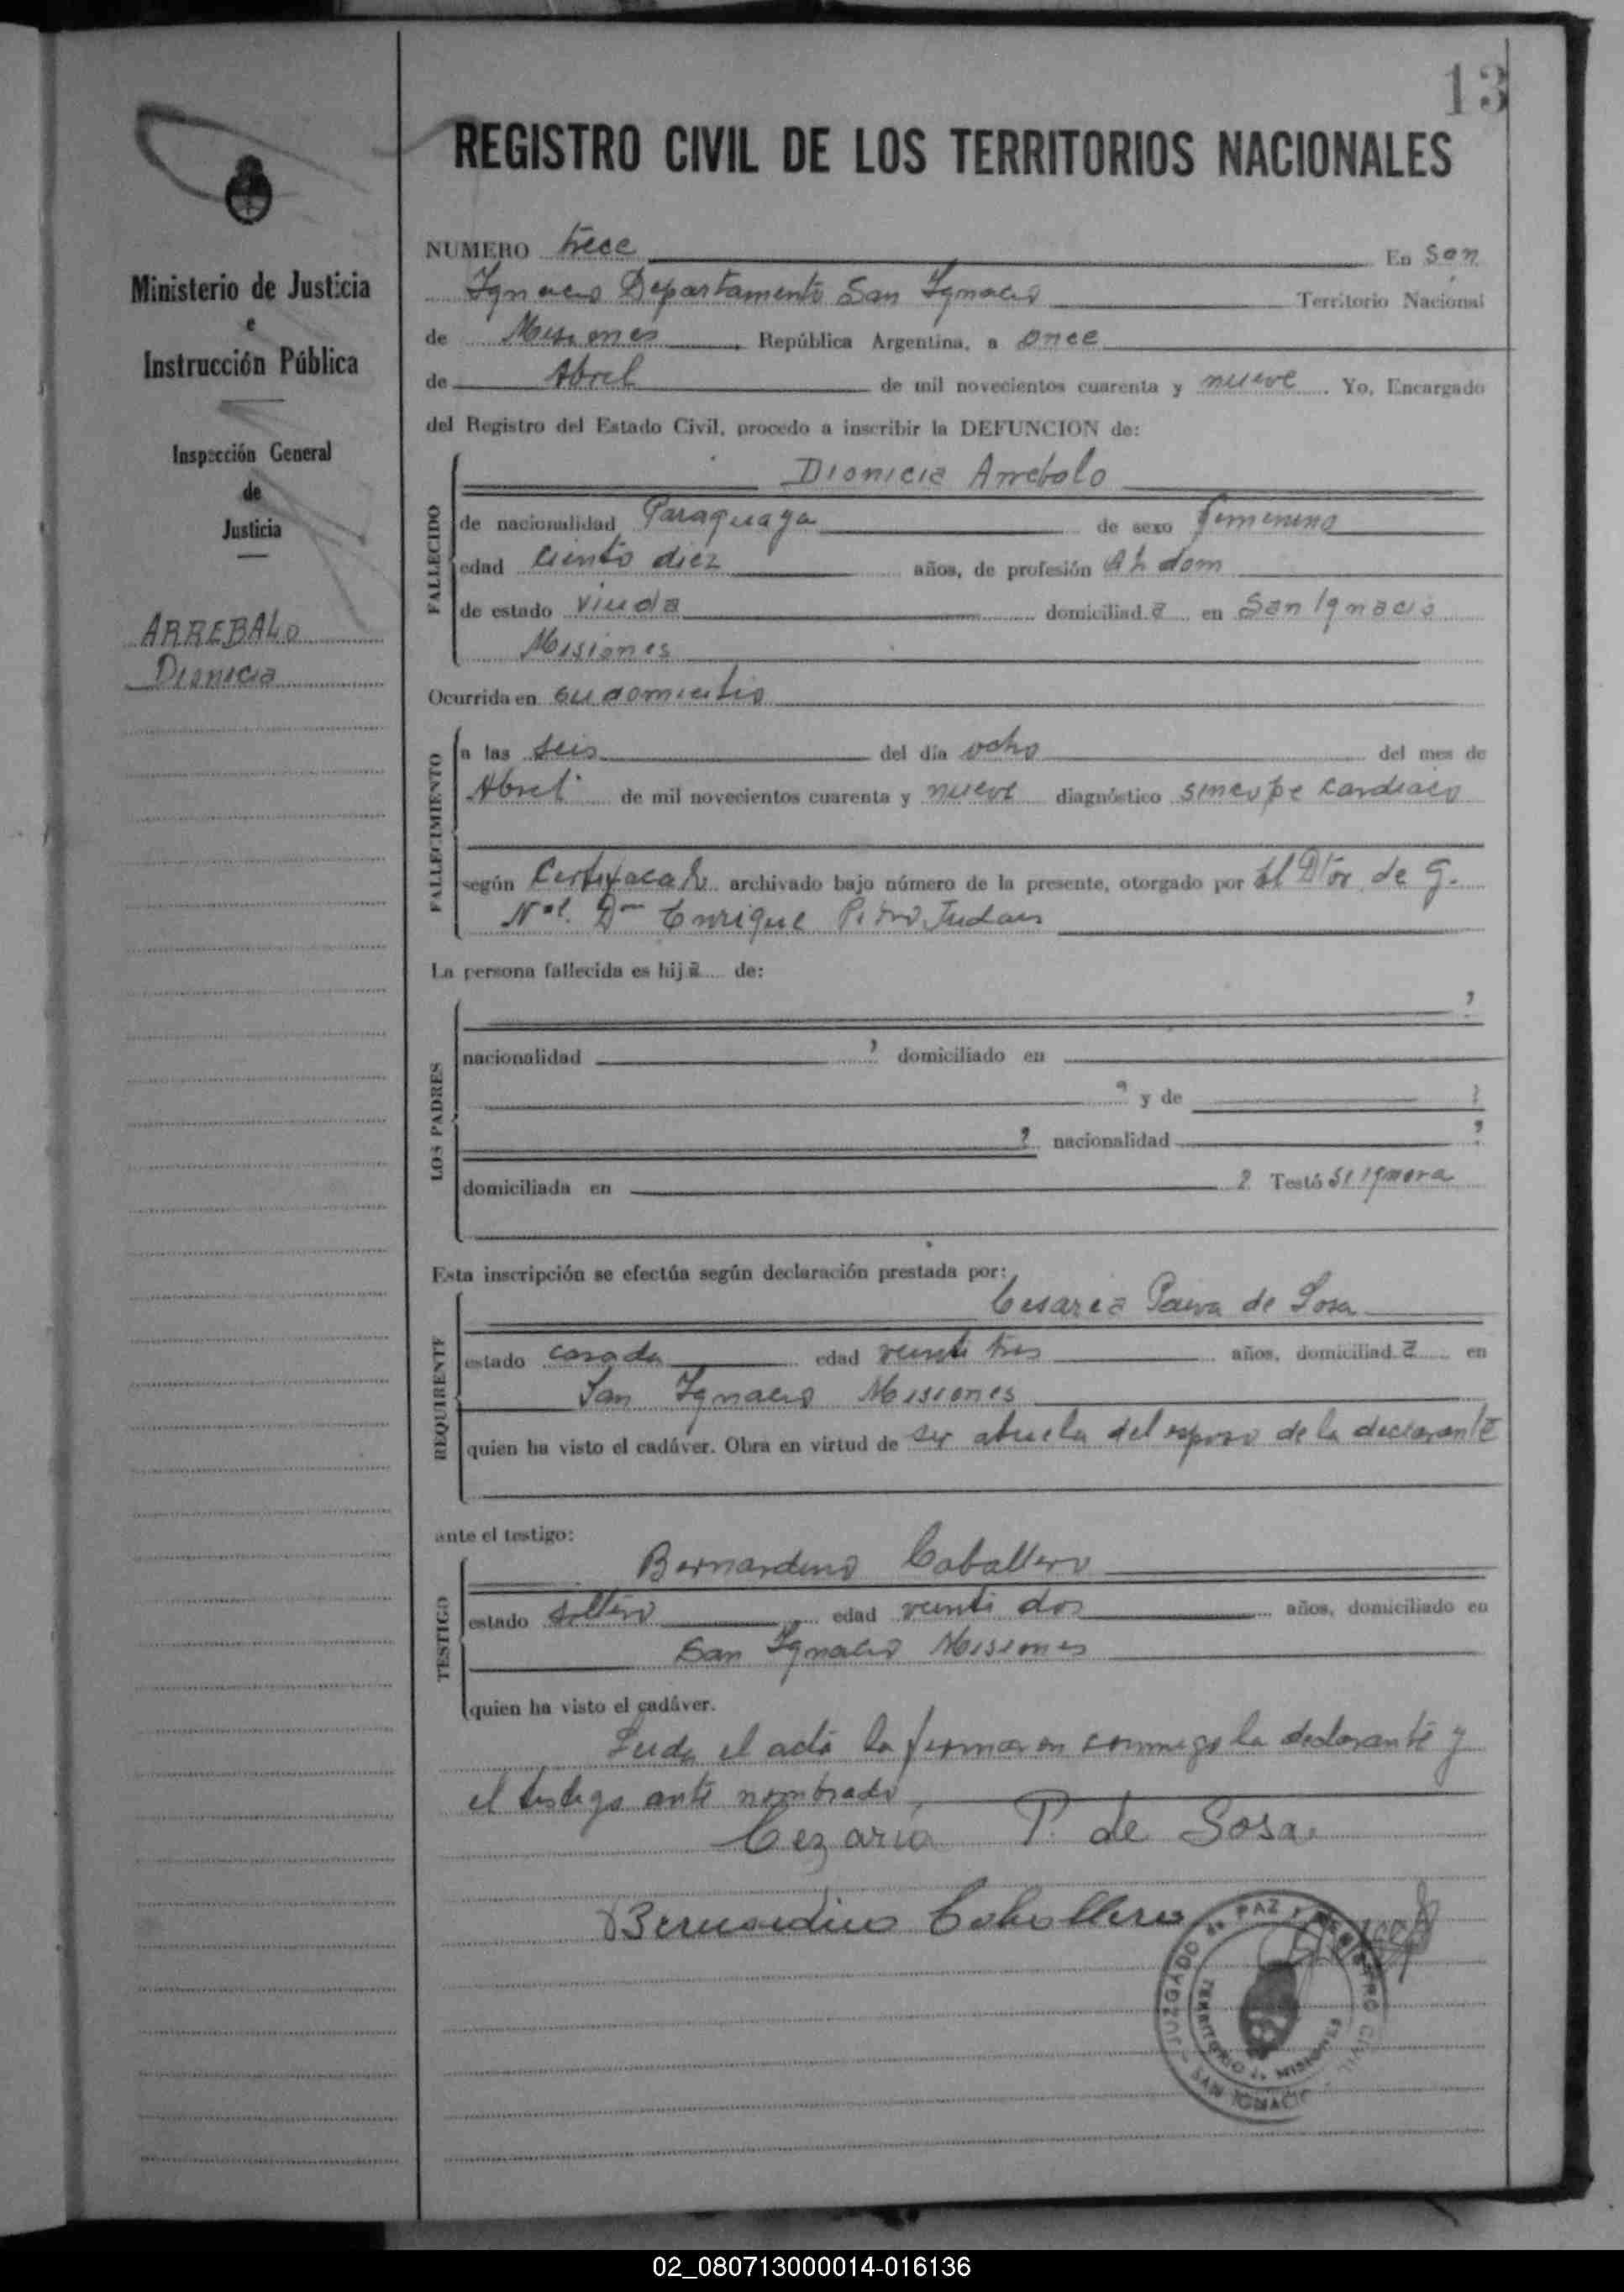 13
REGISTRO CIVIL DE LOS TERRITORIOS NACIONALES
Ministerio de Justicia
e
Instrucción Pública
Inspección General
de
Justicia
ARREBALO
Dionicia
NUMERO trece En San
Ignacio Departamento San Ignacio Territorio Nacional
de Misiones, República Argentina, a once
de Abril de mil novecientos cuarenta y nueve. Yo, Encargado
del Registro del Estado Civil, procedo a inscribir la DEFUNCION de:
FALLECIDO
Dionicia Arrebolo
de nacionalidad Paraguaya de sexo femenino
edad ciento diez años, de profesión dom
de estado viuda domiciliad a en San Ignacio
Misiones
Ocurrida en su domicilio
FALLECIMIENTO
a las seis del día ocho del mes de
Abril de mil novecientos cuarenta y nueve diagnóstico sincope cardiaco
según Certificado archivado bajo número de la presente, otorgado por El de G.
Enrique
La persona fallecida es hij a de:
LOS PADRES
?
nacionalidad ? domiciliado en
? y de ?
? nacionalidad ?
domiciliada en ? Testó se ignora
Esta inscripción se efectúa según declaración prestada por:
REQUIRENTE
Cesarea de Sosa
estado casada edad veinte tres años, domiciliad a en
San Ignacio Misiones
quien ha visto el cadáver. Obra en virtud de ser abuela del esposo de la declarante
ante el testigo:
TESTIGO
Bernardino Caballero
estado soltero edad veinti dos años, domiciliado en
San Ignacio Misiones
quien ha visto el cadáver.
Leida el acta la firmaron conmigo la declarante y
el testigo ante nombrado
Cezaria P. de Sosa
Bernardino Caballero
JUZGADO de PAZ y REGISTRO CIVIL
TERRITORIO de MISIONES
SAN IGNACIO
02_080713000014-016136